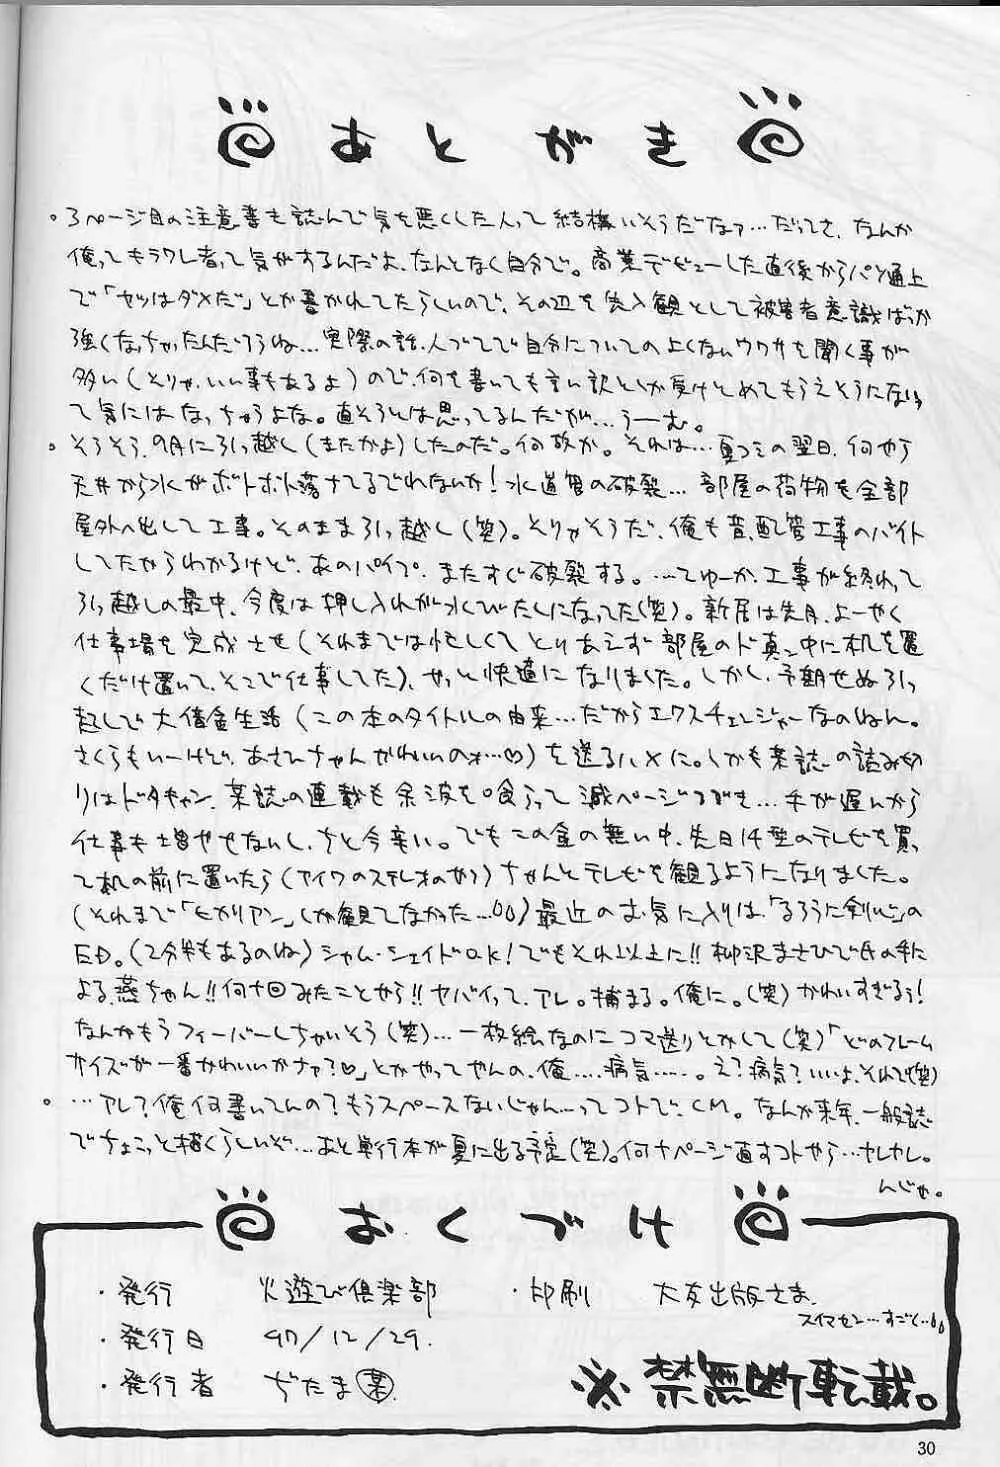 あとがき
。3ページ目の注意書を読んで気を悪くした人って結構いそうだなァ…だってさ、なんか
俺ってキラワレ者って気がするんだよ、なんとなく自分で。商業デビューした直後からパソ通上
で「ヤツはダメだ」とか書かれてたらしいので、その辺を先入観として被害者意識ばっか
強くなっちゃったんだろうね…実際の話、人づてで自分についての上くないウワサを聞く事が
多い(そりゃ、いい事もあるよ)ので、何を書いても言い訳としか受けとめてもらえそうにないっ
て気にはなっちゃうよな。直そうとは思ってるんだが…うーむ。
。そろそろ、9月に引っ越し(またかよ)したのだ。何故か。それは…夏コミの翌日、何やら
天井から水がボトボト落ちてるでわないか!水道管の破裂…部屋の荷物を全部
屋外へ出して工事。そのまま引っ越し(笑)。そりゃそうだ、俺も昔、配管工事のバイト
してたからわかるけど、あのパイプ、またすぐ破裂する。…てゆーか、工事が終わって
引っ越しの最中、今度は押し入れが水びたしになってた(笑)。新居は先月、よーやく
仕事場を完成させ(それまでは忙しくてとりあえず部屋のド真ン中に机を置
くだけ置いて、そこで仕事してた)、やっと快適になりました。しかし、予期せぬ引っ
越しで大借金生活(この本のタイトルの由来…だからエクスチェンジャーなのねん。
さくらもいーけど、あさひちゃんかわいいのォ…♡)を送るハメに。しかも某誌の読み切
りはドタキャン、某誌の連載も余波を喰らって減ページ
仕事も増やせないし、ちと今辛い。でもこの金の無い中、先日14型のテレビを買っ
て机の前に置いたら(アイワのステレオのやつ)ちゃんとテレビを観るようになりました。
(それまで「ヒカリアン」しか観てなかった…)最近のお気に入りは、「るろうに剣心」の
ED。(2分半もあるのね)シャム・シェイドOk!でもそれ以上に!!柳沢まさひで氏の手に
よる燕ちゃん!!何十回みたことやら!!ヤバイって、アレ。捕まる。俺に。(笑)かわいすぎるぅ!
なんかもうフィーバーしちゃいそう(笑)…一枚絵なのにコマ送りとかして(笑)「どのフレーム
サイズが一番かわいいかナァ?♡」とかやってやんの、俺……病気……。え?病気?いいよ、それで(笑)
。…アレ?俺何書いてんの?もうスペースないじゃん…ってコトで、CM。なんか来年、一般誌
でちょこっと描くらしいぞ…あと単行本が夏に出る予定(笑)。何十ページ直すコトやら…ヤレヤレ。
んじゃ。
おくづけ
・発行 火遊び倶楽部 ・印刷 大友出版さま、
スイマセン…すごく…
・発行日 97/12/29.
・発行者 ぢたま(某).
※禁無断転載。
30